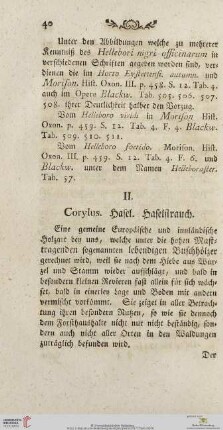 40
Unter den Abbildungen welche zu mehrerer
Kenntniß des Hellebori nigri officinarum in
verschiedenen Schriften gegeben worden sind, ver-
dienen die im Horto Eystettensi. autumn. und
Morison. Hist. Oxon. III. p. 458. S. 12. Tab. 4.
auch im Opere Blackw. Tab. 505. 506. 507.
508. ihrer Deutlichkeit halber den Vorzug.
Vom Helleboro viridi in Morison Hist.
Oxon. p. 459. S. 12. Tab. 4. F. 4. Blackw.
Tab. 509. 510. 511.
Vom Helleboro foetido. Morison. Hist.
Oxon. III. p. 459. S. 12. Tab. 4. F. 6. und
Blackw. unter dem Namen Helleboraster.
Tab. 57.
II.
Corylus. Hasel. Haselstrauch.
Eine gemeine Europäische und innländische
Holzart bey uns, welche unter die hohen Mast-
tragenden sogenannten lebendigen Buschhölzer
gerechnet wird, weil sie nach dem Hiebe aus Wur-
zel und Stamm wieder ausschlägt, und bald in
besondern kleinen Revieren fast allein für sich wäch-
set, bald in einerley Lage und Boden mit andern
vermischt vorkömmt. Sie zeiget in aller Betrach-
tung ihren besondern Nutzen, so wie sie dennoch
dem Forsthaushalte nicht nur nicht beständig, son-
dern auch nicht aller Orten in den Waldungen
zuträglich befunden wird.
Der